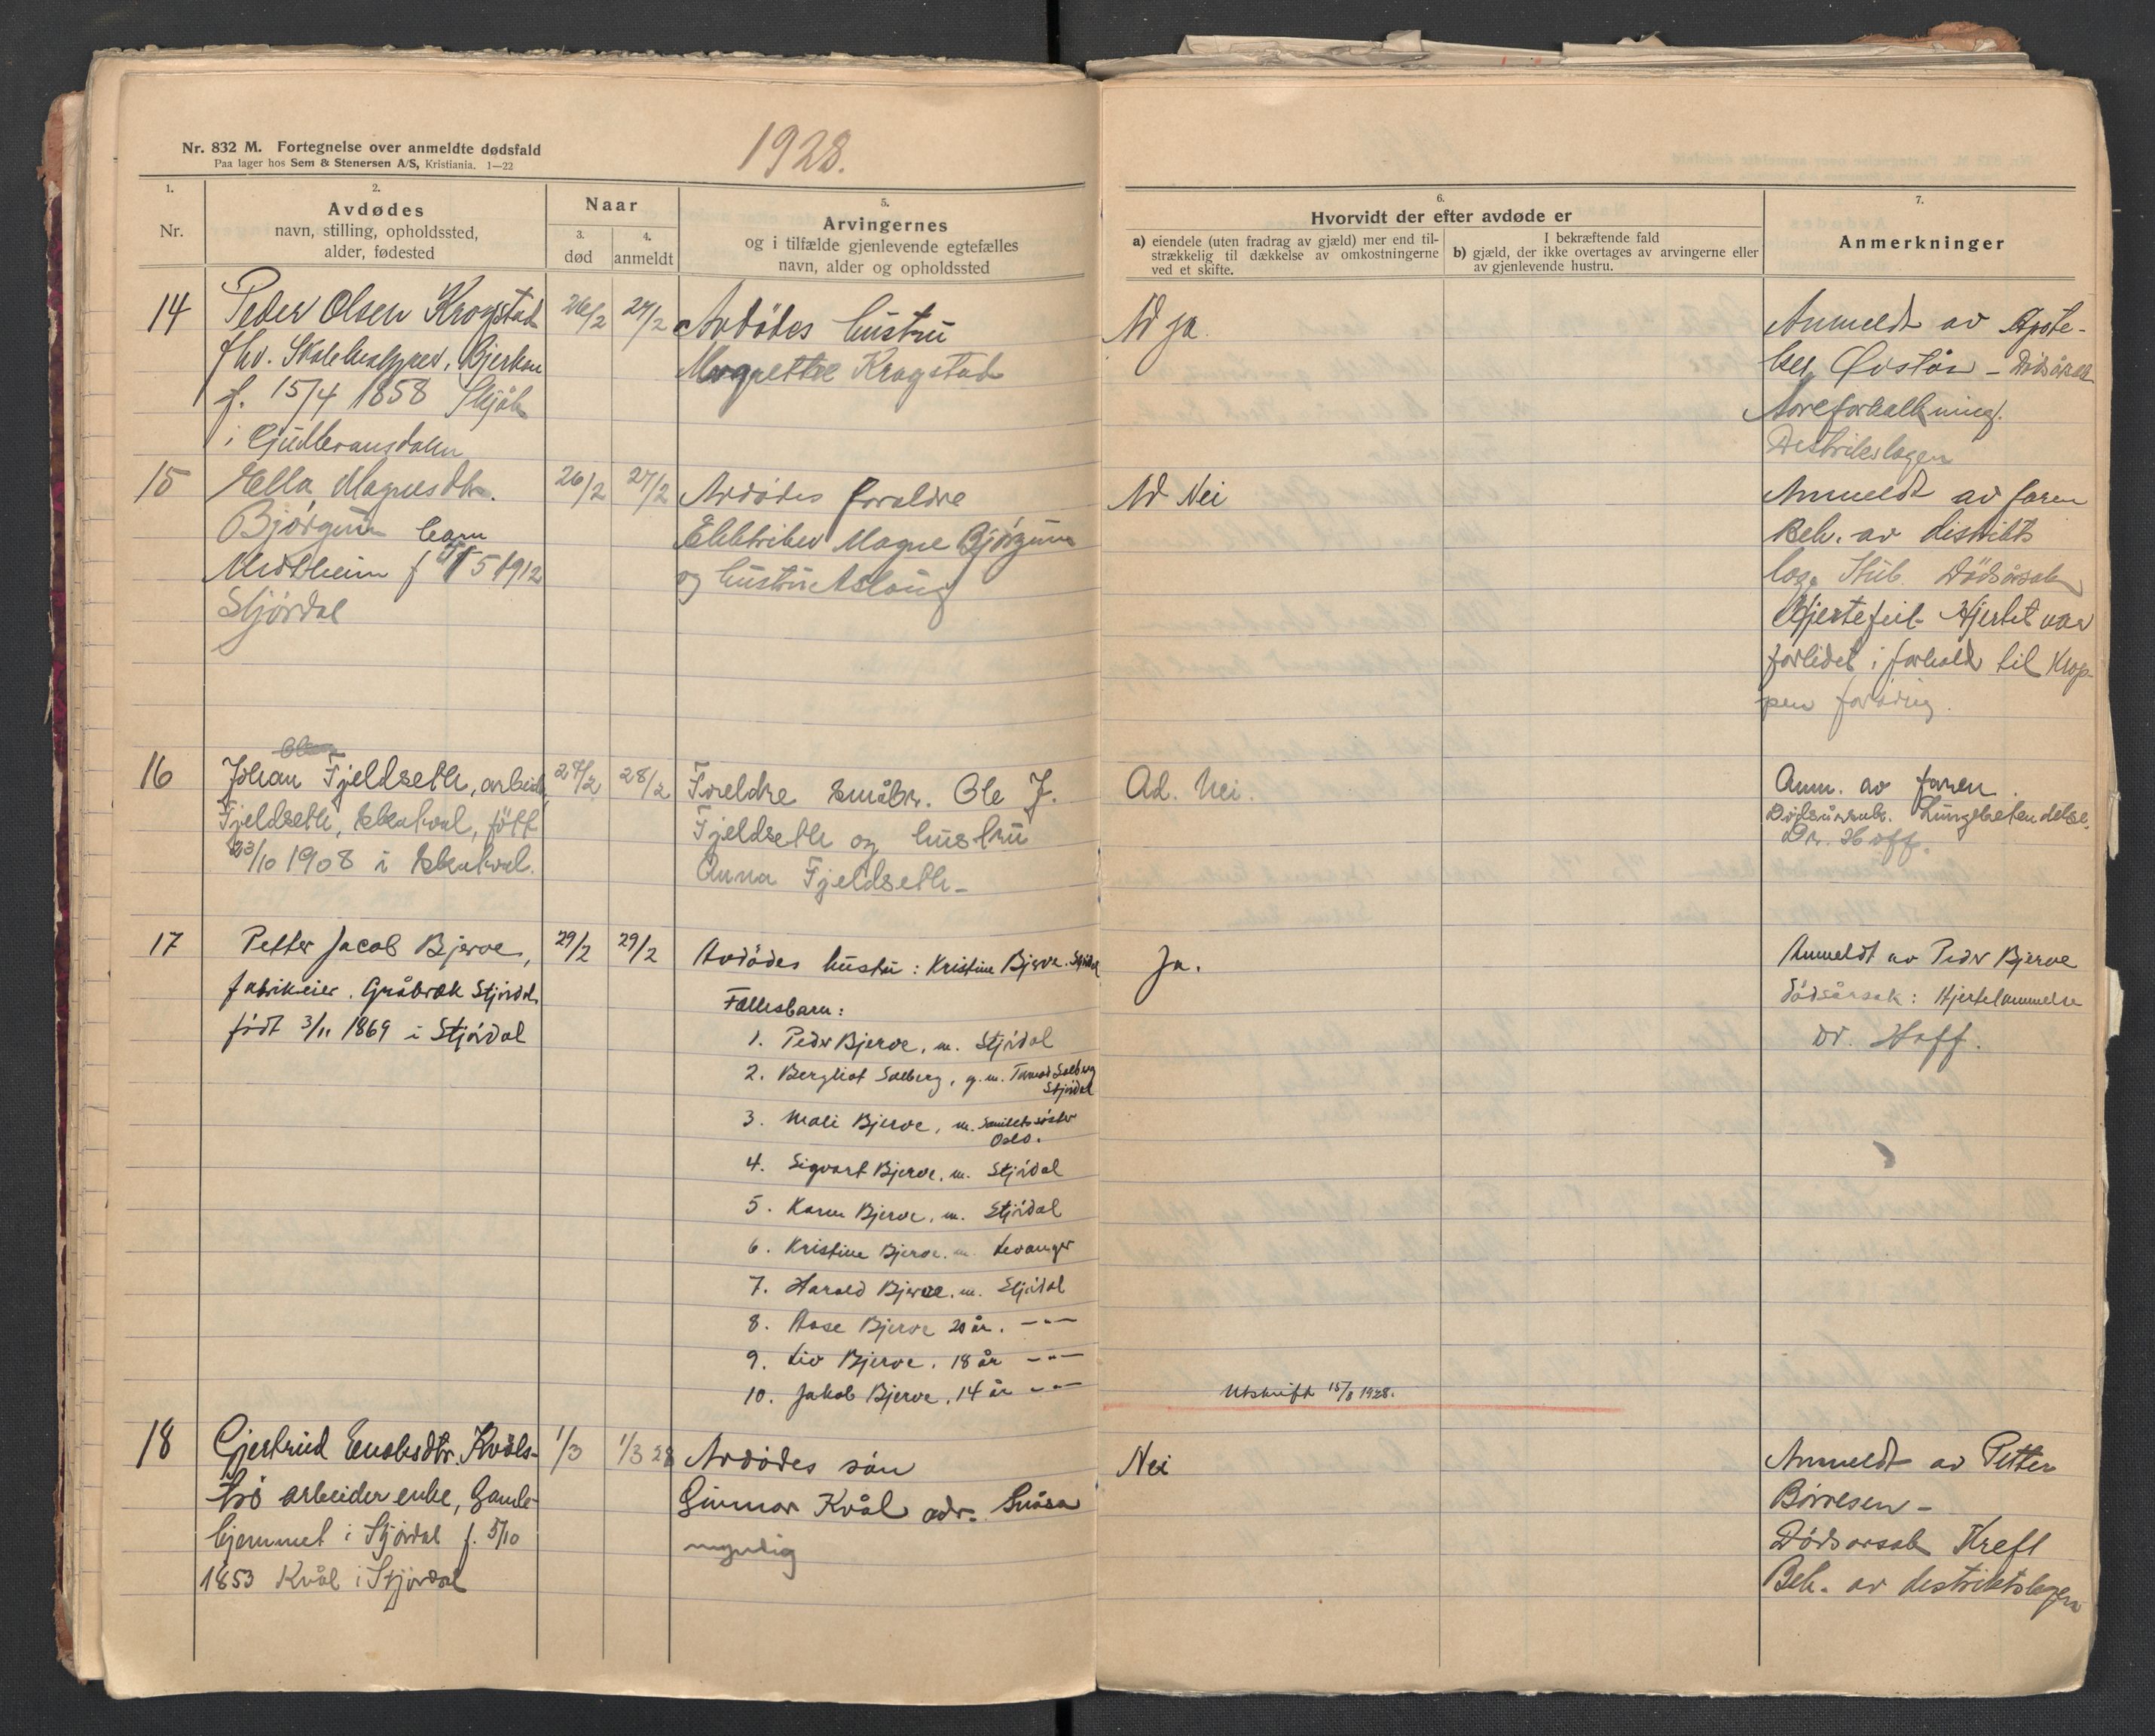 Nr. 832 M. Fortegnelse over anmeldte dødsfald
Paa lager hos Sem & Stenersen A/S, Kristiania. 1—22
1928.
1.
Nr.
2.
Avdødes
navn, stilling, opholdssted,
alder, fødested
Naar
3.
død
4.
anmeldt
5.
Arvingernes
og i tilfælde gjenlevende egtefælles
navn, alder og opholdssted
6.
Hvorvidt der efter avdøde er
a) eiendele (uten fradrag av gjæld) mer end til-
strækkelig til dækkelse av omkostningerne
ved et skifte.
I bekræftende fald
b) gjæld, der ikke overtages av arvingerne eller
av gjenlevende hustru.
7.
Anmerkninger
14
Peder Olsen Krogstad
fhv.
f. 15/4 1858 Skjåk
i Gudbransdalen
26/2
27/2
Avdödes hustru
Magrethe Krogstad
Ad ja.
Anmeldt av Apote-
ker Övstås - Dödsårsak
Åreforkalkning.
Distrikslægen
15
Ella Magnesdtr.
Bjørgum barn
Midtheim f 5 1912
Stjördal
26/2
27/2
Avdödes foreldre
Elektriker Magne Bjørgum
og hustru Aslaug
Ad Nei
Anmeldt av faren
Beh. av distrikts
læge Stub. Dödsårsak
Hjertefeil Hjertet var
forlidet i forhold til Krop-
pen forövrig.
16
Johan Fjeldseth, arbeider,
Fjeldseth, Skatval, fött
23/10 1908 i Skatval.
27/2
28/2
Foreldre småbr. Ole J.
Fjeldseth og hustru
Anna Fjeldseth-
Ad. Nei.
Anm. av faren.
Dødsårsak. Lungebetendelse.
Dr. Hoff.
17
Petter Jacob Bjerve,
fabrikeier. Gråbrek Stjördal.
födt 3/11 1869 i Stjördal
29/2
29/2
Avdödes hustru: Kristine Bjerve. Stjördal
Fællesbarn:
1. Peder Bjerve, m. Stjördal
2. Bergliot Solberg, g.m. Tormod Solberg
Stjördal
3. Mali Bjerve, m. Sanitetssöster
Oslo.
4. Sigvart Bjerve. m. Stjördal
5. Karen Bjerve. m. Stjördal
6. Kristine Bjerve. m. Levanger
7. Harald Bjerve. m. Stjördal
8. Aase Bjerve 20 år. -"-
9. Liv Bjerve. 18 år -"-
10. Jakob Bjerve. 14 år -"-
Ja.
Utskrift 15/8 1928.
Anmeldt av Peder Bjerve
Dödsårsak: Hjertelammelse
Dr. Hoff.
18
Gjertrud Enoksdtr. Kvåls-
trö arbeider enke, Gamle-
hjemmet i Stjördal f. 5/10
1853 Kvål i Stjördal
1/3
1/3 28
Avdödes sön
Gunnar Kvål adr. Snåsa
myndig
Nei
Anmeldt av Petter
Börresen -
Dödsorsak Kreft
Beh. av distriktslægen